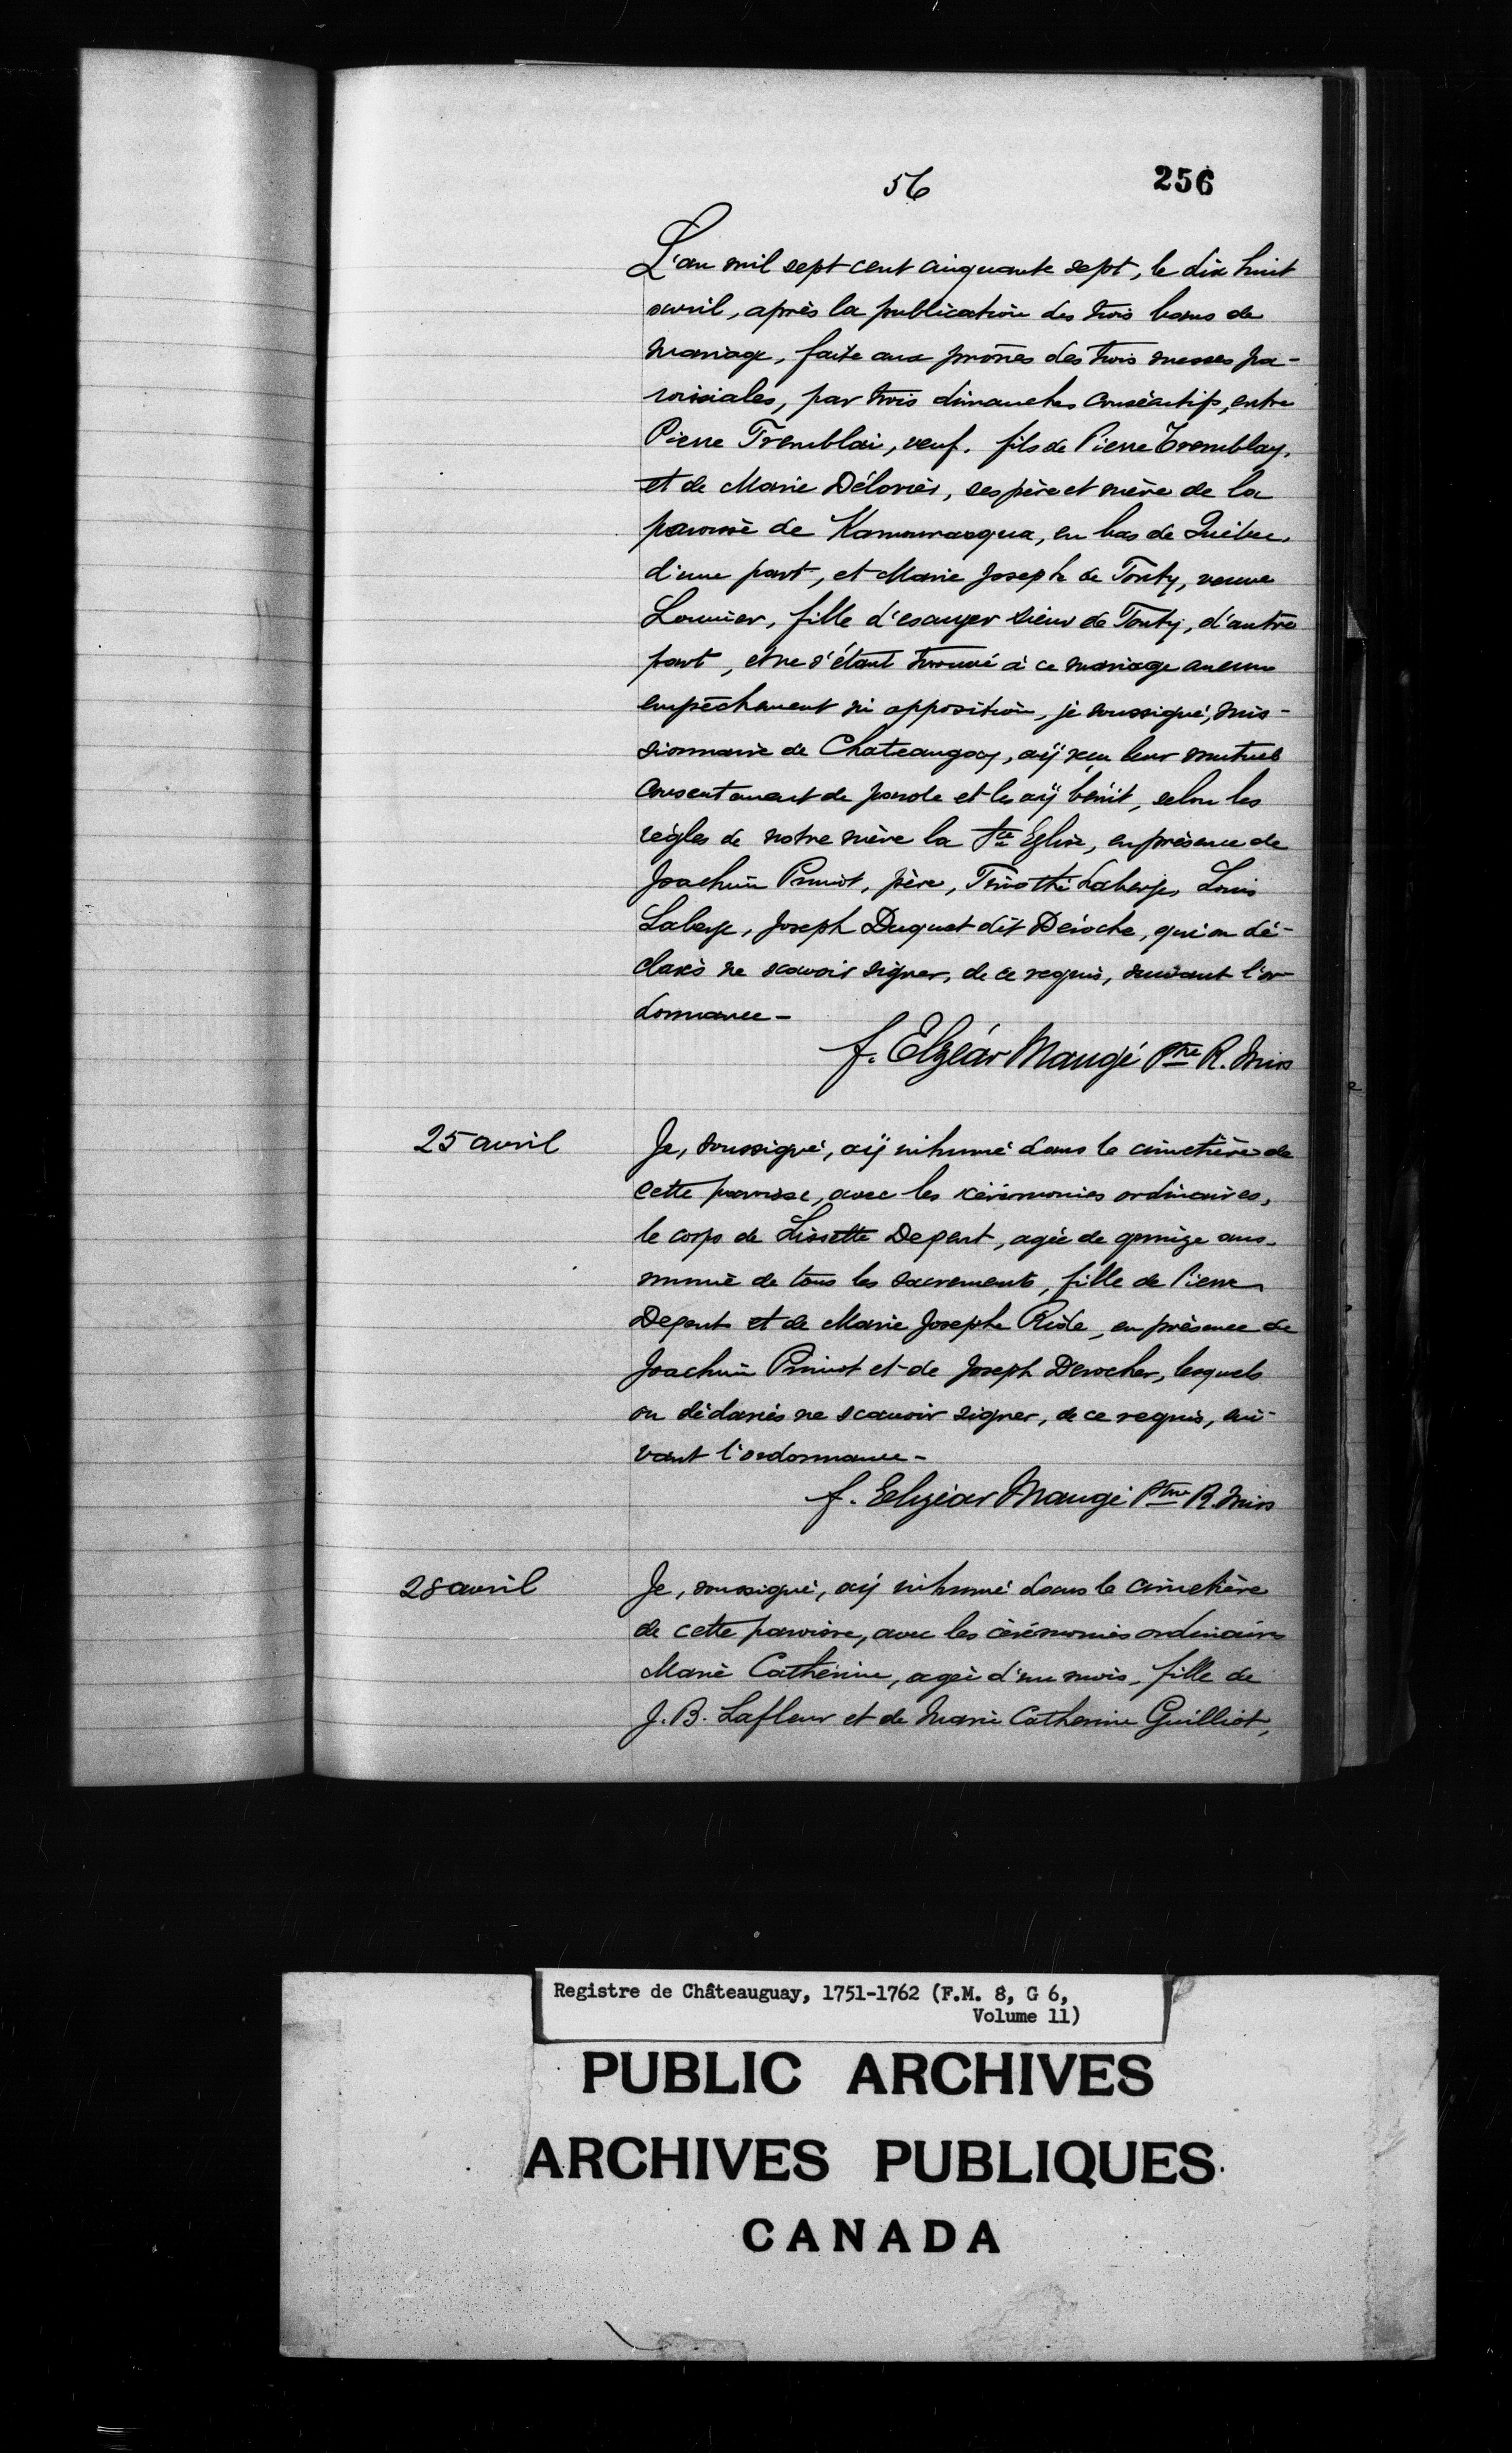 56
256
L'an mil sept cent cinquante sept, le dix huit
avril, après la publication des trois bans de
mariage, faite aux prônes des trois messes pa-
roissiales, par trois dimanches consécutifs, entre
Pierre Tremblai, veuf. fils de Pierre Tremblay,
et de Marie Déloriès, ses père et mère de la
paroisse de Kamourasqua, en bas de Québec,
d'une part, et Marie Joseph de Tonty, veuve
Lournier, fille d'escuyer sieur de Tonty, d'autre
part, et ne s'étant trouvé à ce mariage aucun
empêchement ni opposition, je soussigné, mis-
sionnaire de Chateaugoay, aÿ reçu leur mutuel
consentement de parole et les aÿ bénit, selon les
règles de notre mère la Ste Eglise, en présence de
Joachim Primot, père, Timothé Laberge, Louis
Laberge, Joseph Duquet dit Déroche, qui on dé-
clarés ne scavoir signer, de ce requis, suivant l'or
donnance-
f. Elzéar Maugé Ptre R. Miss
25 avril
Je, soussigné, aÿ inhumé dans le cimetière de
cette paroisse, avec les cérémonies ordinaires,
le corps de Lissette Depent, agée de quinze ans.
munie de tous les sacrements, fille de Pierre
Depent et de Marie Josephe Ride, en présence de
Joachim Primot et de Joseph Derocher, lesquels
on déclarés ne scavoir signer, de ce requis, sui-
vant l'ordonnance-
f. Elzéar Maugé Ptre R. Miss
28 avril
Je, soussigné, aÿ inhumé dans le cimetière
de cette paroisse, avec les cérémonies ordinaires
Marie Catherine, agée d'un mois, fille de
J. B. Lafleur et de Marie Catherine Guilliot,
Registre de Châteauguay, 1751-1762 (F.M. 8, G 6,
Volume 11)
PUBLIC ARCHIVES
ARCHIVES PUBLIQUES
CANADA